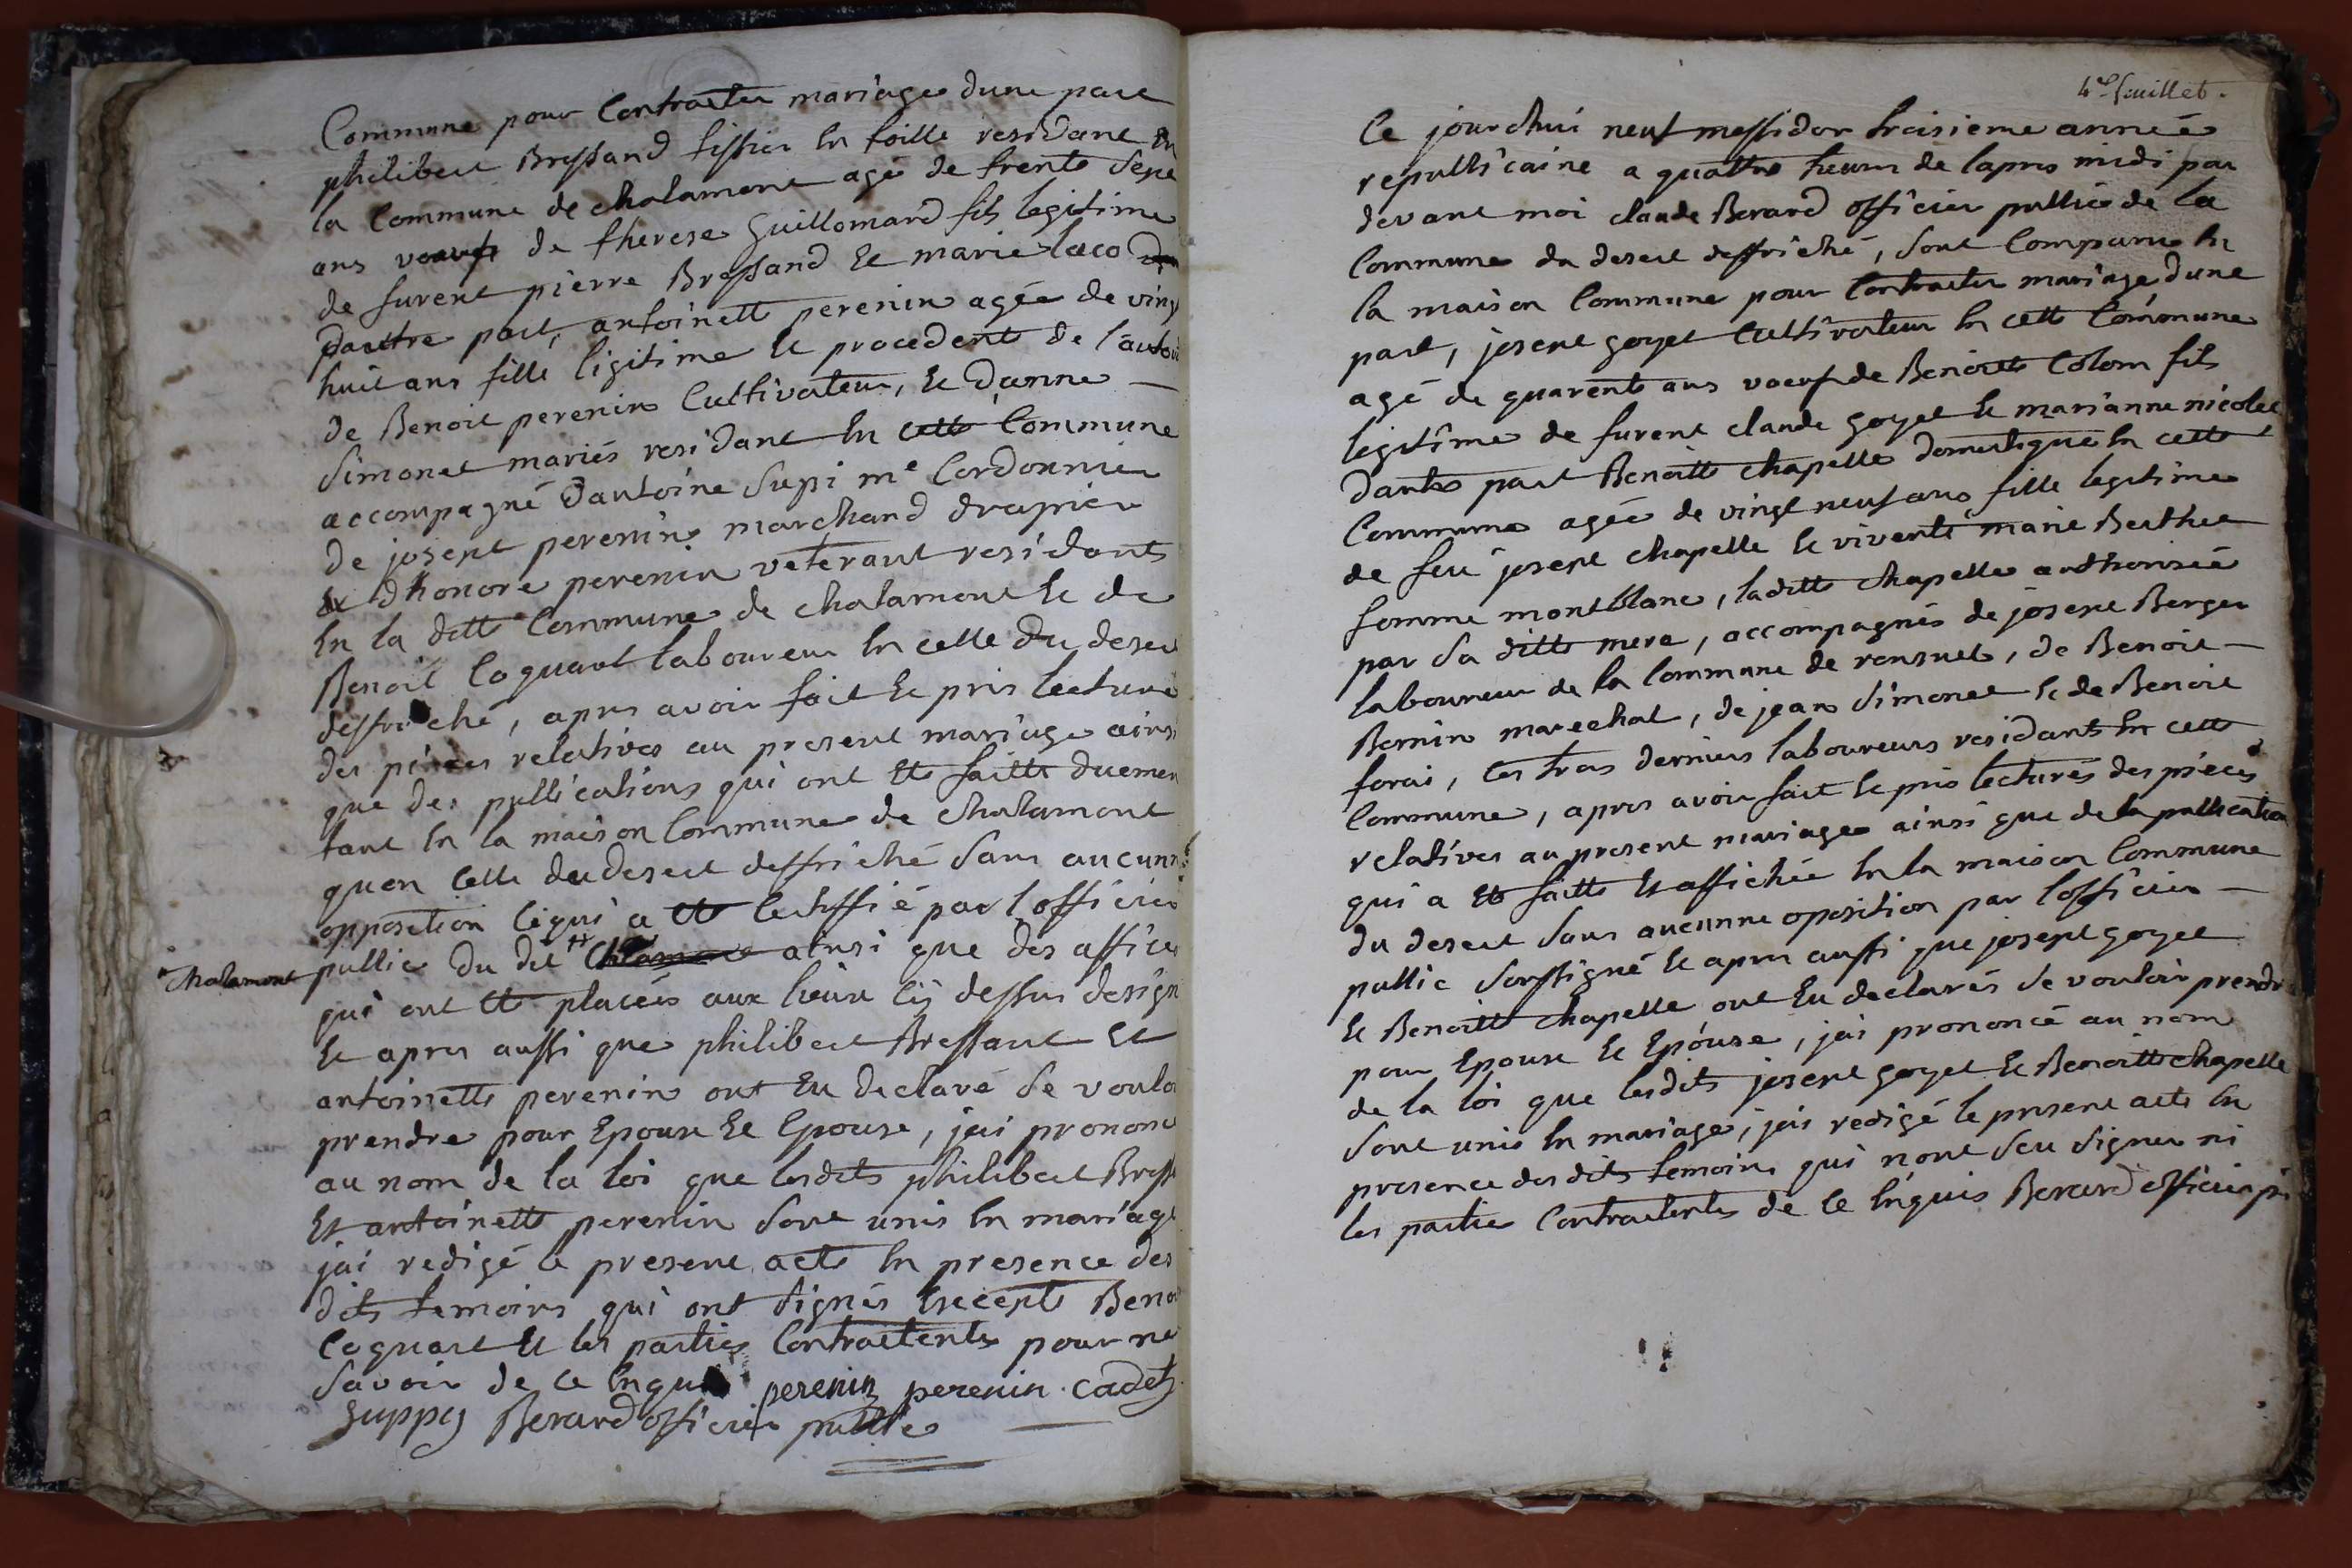 Commune pour Contracter mariage dune part
philibert Bressand tissier En toille residant En
la Commune de chalamont agé de trente sept
ans voeuf de therese Guillomard fils legitime
de furent pierre Bressand Et marie laco
dautre part, antoinette perenin agée de vingt
huit ans fille ligitime Et procedente de l'autori
de Benoit perenin Cultivateur, Et danne
Simonet mariés residant En cette Commune
accompagné dantoine Supi me Cordonnier
de josept perenin marchand drapier
Et dhonoré perenin veterant residants
En la ditte Commune de chalamont Et de
Benoit Coquart laboureur En celle du desert
deffriché, apres avoir fait Et pris lecture
des pièces relatives au present mariage ainsi
que des pullications qui ont Eté faitte duemen
tant En la maison Commune de Chalamont
quen Celle du desert deffriché sans aucunne
opposition Cequi a Eté Certiffié par l'officier
pullic du dit ainsi que des affices
chalamont
qui ont Eté placées aux lieux cÿ dessus design
Et apres aussi que philibert Bressant Et
antoinette perenin ont Eu declaré se voulo
prendre pour Epoux Et Epouse, jai prononcé
au nom de la loi que lesdits philibert Bress
Et antoinette perenin sont unis En mariage
jai redigé le present acte En presence des
dits temoins qui ont signés Excepté Benoi
Coquart Et les parties Contractente pour ne
Savoir de ce Enquis perenin perenin cadet
Suppy Berard officier pullic
4e feuillet.
Ce jourdhui neuf messidor troisieme année
repullicaine a quattre heurs de lapres midi par
devant moi claude Berard officier pullic de la
Commune du desert deffriché, sont Comparus En
la maison Commune pour Contracter mariage dune
part, josept goyet Cultivateur En cette Commune
agé de quarente ans voeuf de Benoitte Colom fils
legitime de furent claude goyet Et marianne nicolet
dautre part Benoitte chapelle domestique En cette
Commune agée de vingt neuf ans fille legitime
de feu josept chapelle Et vivente marie Berthet
femme montblanc, laditte chapelle authorisée
par sa ditte mere, accompagnés de josept Berger
laboureur de la Commune de ronzuel, de Benoit
Bernin marechal, de jean Simonet Et de Benoit
forai, les trois derniers laboureurs residants En cette
Commune, apres avoir fait Et pris lecturés des pièces
relatives au present mariage ainsi que de la pullication
qui a Eté faitte Et affichée En la maison Commune
du desert sans aucunne oposition par lofficier
pullic soussigné Et apres aussi que josept goyet
Et Benoitte chapelle ont Eu declarés se vouloir prendre
pour Epoux Et Epouse, jai prononcé au nom
de la loi que lesdits josept goyet Et Benoitte chapelle
sont unis En mariage, jai redigé le present acte En
presence des dits temoins qui nont Seu signer ni
les partie Contractente de ce Enquis Berard officier p